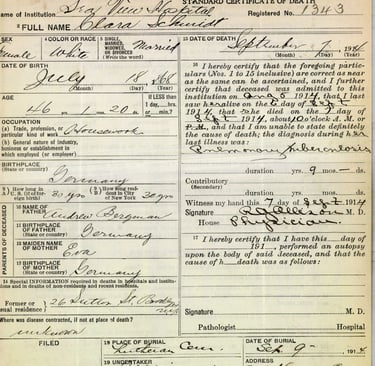 STANDARD CERTIFICATE OF DEATH
Sea View Hospital
Registered No. 1343
2 FULL NAME Clara Schmidt
3 SEX
Female
White
5 SINGLE, MARRIED, WIDOWED, OR DIVORCED (Write the word)
Married
15 DATE OF DEATH
September 1914
(Month) (Day) (Year)
DATE OF BIRTH
July 18 1868
(Month) (Day) (Year)
AGE
If LESS than 1 day, hrs.
46 1 20
OCCUPATION
(a) Trade, profession, or particular kind of work Housework
(b) General nature of industry, business or establishment in which employed (or employer)
BIRTHPLACE
(State or country)
Germany
(A) How long in U. S. (if of foreign birth) 30 yrs
(B) How long resident in City of New York 30 yrs
PARENTS OF DECEASED
10 NAME OF FATHER Andrew Bergman
11 BIRTHPLACE OF FATHER (State or country) Germany
12 MAIDEN NAME OF MOTHER Eva
13 BIRTHPLACE OF MOTHER (State or country) Germany
14 Special INFORMATION required in deaths in hospitals and institutions and in deaths of non-residents and recent residents.
Former or usual residence 26 Sutton St. Brooklyn
Where was disease contracted, if not at place of death?
unknown
FILED
16 I hereby certify that the foregoing particulars (Nos. 1 to 15 inclusive) are correct as near as the same can be ascertained, and I further certify that deceased was admitted to this institution on Aug 1914, that I last saw her alive on the day of Sept 1914 that she died on the day of Sept 1914, about 10 o'clock A. M. or P. M., and that I am unable to state definitely the cause of death; the diagnosis during her last illness was:
Pulmonary tuberculosis
duration yrs. 9 mos. ds.
Contributory (Secondary)
duration yrs. mos. ds.
Witness my hand this 7 day of Sept 1914
Signature M. D.
House Physician
17 I hereby certify that I have this day of 191 , performed an autopsy upon the body of said deceased, and that the cause of h death was as follows:
Signature M. D.
Pathologist Hospital
18 PLACE OF BURIAL
Lutheran Cem.
DATE OF BURIAL
Sep. 9 1914
19 UNDERTAKER
ADDRESS